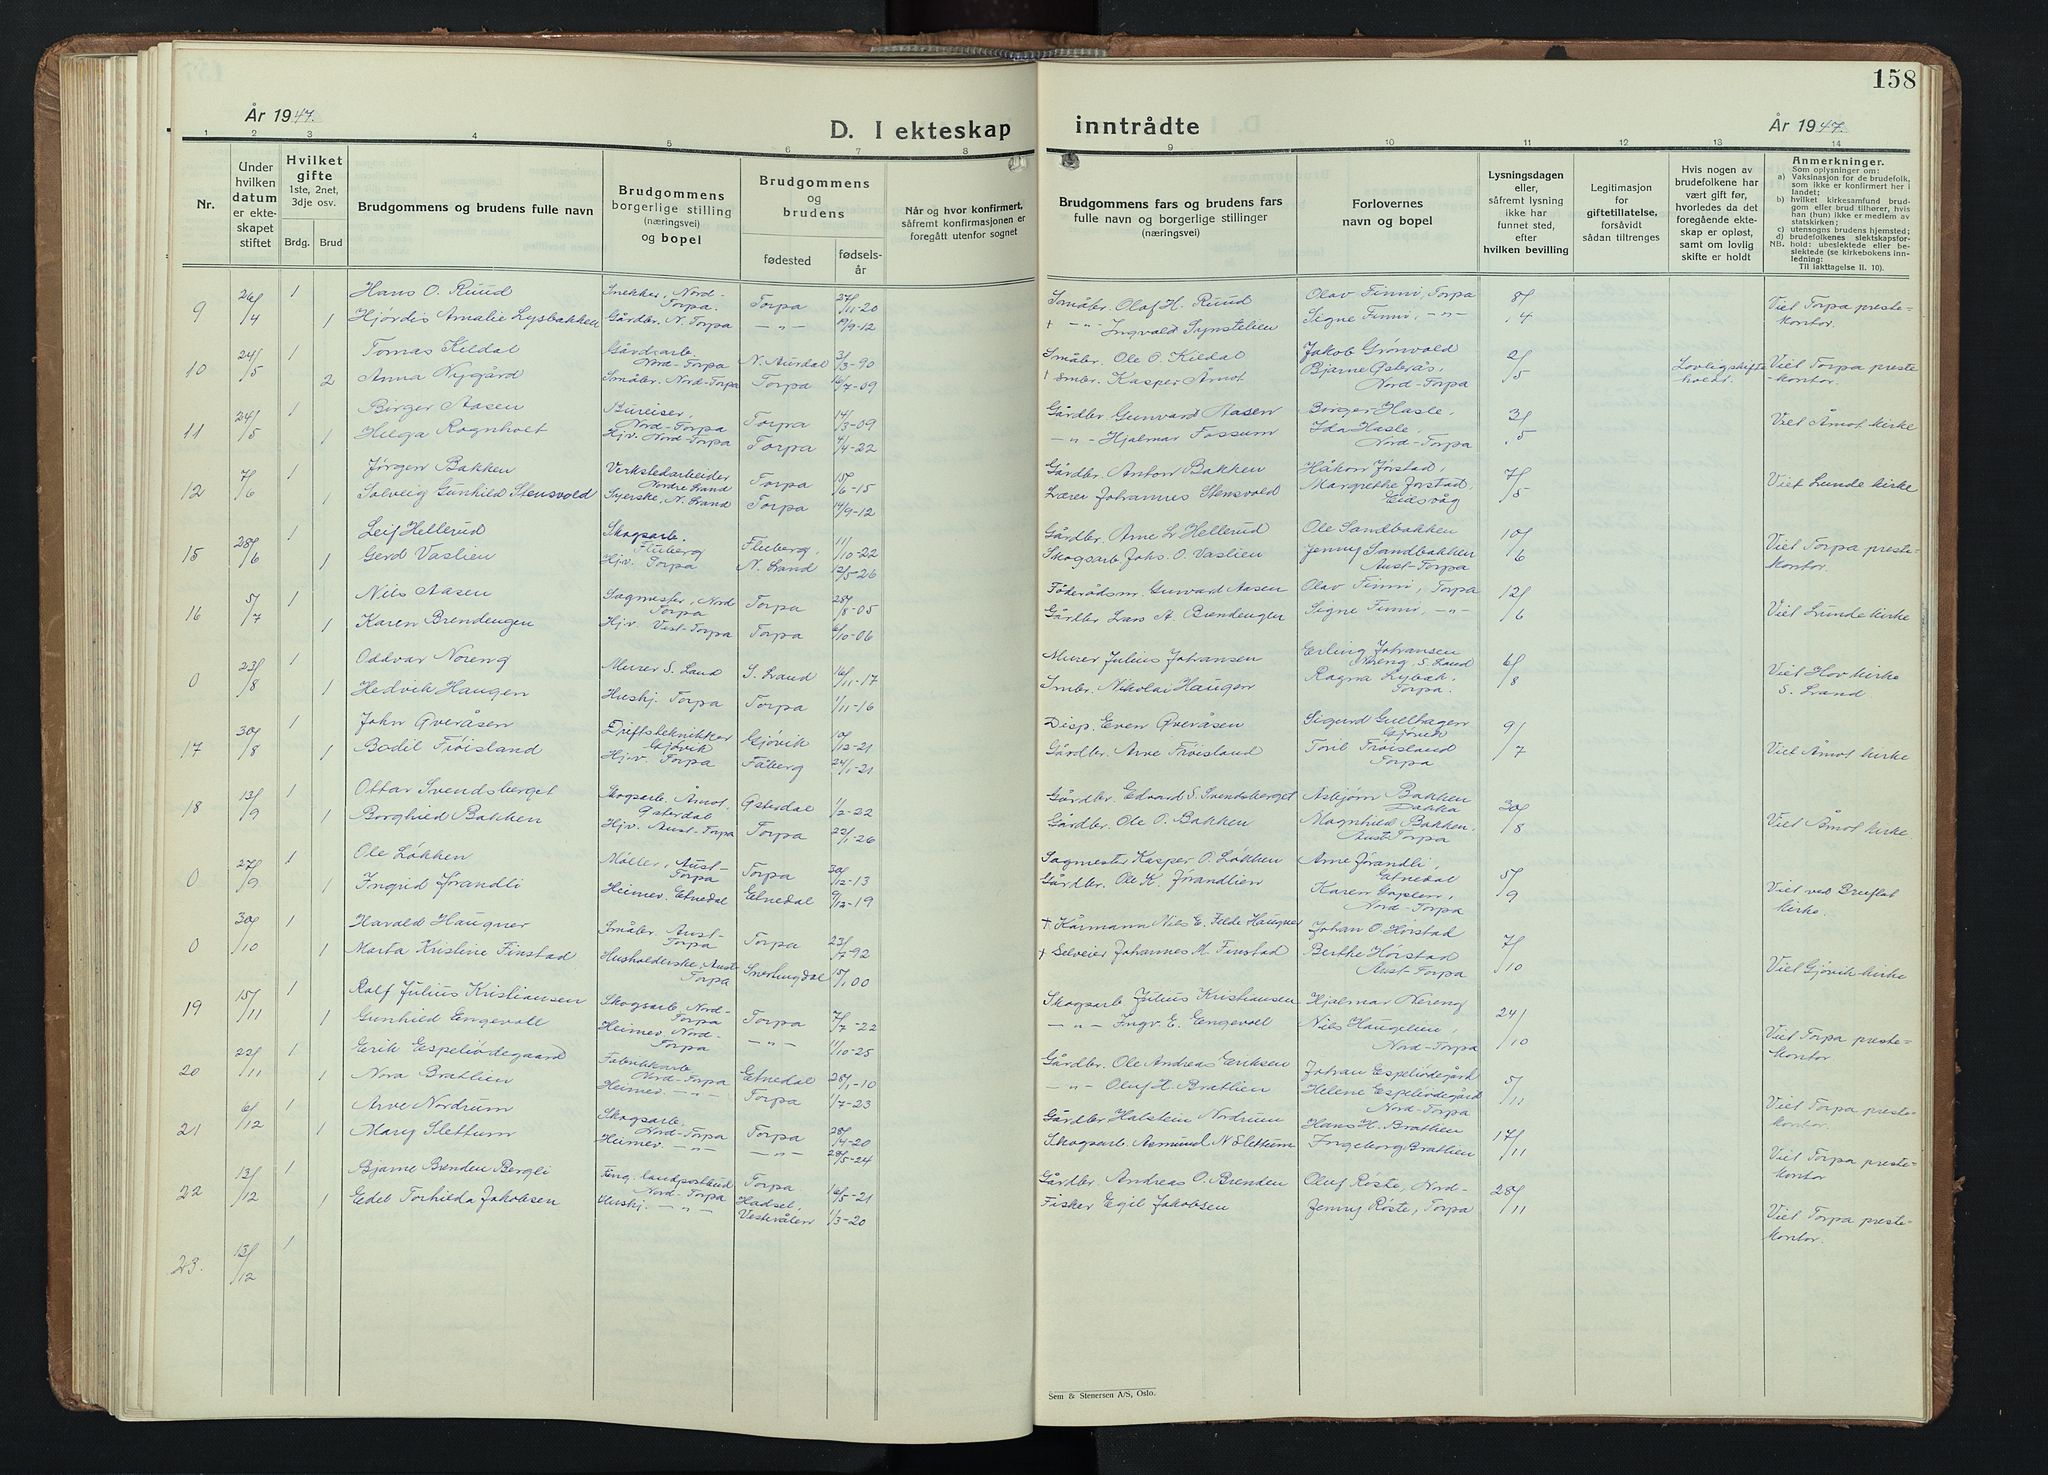 158
År 1947.
D. I ekteskap inntrådte
År 1947.
1 2 3 4 5 6 7 8 9 10 11 12 13 14
Nr.
Under hvilken datum er ekteskapet stiftet
Hvilket gifte 1ste, 2net, 3dje osv.
Brdg. Brud
Brudgommens og brudens fulle navn
Brudgommens borgerlige stilling (næringsvei) og bopel
Brudgommens og brudens
fødested
fødselsår
Når og hvor konfirmert, såfremt konfirmasjonen er foregått utenfor sognet
Brudgommens fars og brudens fars fulle navn og borgerlige stillinger (næringsvei)
Forlovernes navn og bopel
Lysningsdagen eller, såfremt lysning ikke har funnet sted, efter hvilken bevilling
Legitimasjon for giftetillatelse, forsåvidt sådan tiltrenges
Hvis nogen av brudefolkene har vært gift før, hvorledes da det foregående ekteskap er opløst, samt om lovlig skifte er holdt
Anmerkninger.
Som oplysninger om:
a) Vaksinasjon for de brudefolk, som ikke er konfirmert her i landet;
b) hvilket kirkesamfund brudgom eller brud tilhører, hvis han (hun) ikke er medlem av statskirken;
c) utensogns brudens hjemsted;
d) brudefolkenes slektskapsforhold: ubeslektede eller beslektede (se kirkebokens innledning:
NB.
Til iakttagelse II. 10).
9 26/4 1 Hans O. Ruud Snekker, Nord-Torpa. Torpa 27/11-20 Småbr. Olaf H. Ruud Olav Finni, Torpa 8/4 Viet Torpa prestekontor.
1 Hjørdis Amalie Lysbakken Gårdbr. N. Torpa -"- 19/9-12 + -"- Ingvald Synstelien Signe Finni, -"-
10 24/5 1 Tomas Kildal Gårdsarb. Nord-Torpa N. Aurdal 3/3-90 Småbr. Ole O. Kildal Jakob Grønvold 2/5 Lovlig skifte holdt. Viet Torpa prestekontor.
2 Anna Nygård Småbr. Nord-Torpa Torpa 16/7-09 + Smbr. Kasper Åmot Bjarne Østerås, Nord-Torpa
11 24/5 1 Birger Aasen Bureiser, Nord-Torpa Torpa 14/3-09 Gårdbr. Gunvard Aasen Borger Hasle, 3/5 Viet Åmot kirke
1 Helga Rognholt Hjv. Nord-Torpa Torpa 4/4-22 -"- Hjalmar Fossum Ida Hasle, Nord-Torpa
12 7/6 1 Jørgen Bakken Verkstedarbeider Nordre Land Torpa 15/6-15 Gårdbr. Anton Bakken Håkon Jørstad, 7/5 Viet Lunde kirke
1 Solveig Gunhild Stensvold Syerske, N. Land Torpa 14/9-12 Lærer Johannes Stensvold Margrethe Jørstad, Eidsvåg
15 28/6 1 Leif Hellerud Skogsarb. Fluberg Fluberg, 11/10-22 Gårdbr. Arne L Hellerud Ole Sandbakken 10/6 Viet Torpa prestekontor.
1 Gerd Vaslien Hjv. Torpa N. Land 12/5-26 Skogsarb Johs. O. Vaslien Jenny Sandbakken Aust-Torpa
16 5/7 1 Nils Aasen Sagmester, Nord Torpa Torpa 28/8-05 Føderådsm. Gunvard Aasen Olav Finni, Torpa 12/6 Viet Lunde kirke
1 Karen Brendengen Hjv. Vest-Torpa Torpa 6/10-06 Gårdbr Lars A. Brendengen Signe Finni, -"-
0 23/8 1 Oddvar Noreng Murer S. Land S. Land 16/11-17 Murer Julius Johansen Erling Johansen Nereng, S. Land 6/8 Viet Hov kirke S. Land
1 Hedvik Haugen Hushj. Torpa Torpa 1/11-16 Smbr. Nikolai Haugen Ragna Lybæk, Torpa.
17 30/8 1 John Øveråsen Driftstekniker Gjøvik Gjøvik 10/12-21 Disp. Even Øveråsen Sigurd Gullhagen Gjøvik 9/7 Viet Åmot kirke
1 Bodil Frøisland Hjv. Torpa Fåberg 24/1-21 Gårdbr. Arve Frøisland Toril Frøisland Torpa
18 13/9 1 Ottar Svendsberget Skogsarb. Åmot, Østerdal Østerdal 1/2-22 Gårdbr. Edvard S. Svendsberget Asbjørn Bakken Dokka 30/8 Viet Åmot kirke
1 Borghild Bakken Hjv. Aust-Torpa Torpa 22/1-26 Gårdbr. Ole O. Bakken Magnhild Bakken, Aust-Torpa
0 27/9 1 Ole Løkken Møller, Aust-Torpa Torpa 30/12-13 Sagmester Kasper O. Løkken Arne Jørandli, Etnedal 5/9 Viet ved Bruflat kirke.
1 Ingrid Jørandli Heimev. Etnedal Etnedal 9/12-19 Gårdbr. Ole K. Jørandlien Karen Goplen, Nord-Torpa
0 30/10 1 Harald Haugner Småbr. Aust-Torpa Torpa 23/7-92 + Kårmann Nils E. Felde Haugner Johan O. Hørstad 7/10 Viet Gjøvik kirke
1 Marta Kristine Finstad Husholderske, Aust Torpa Snertingdal 15/1,00 + Selveier Johannes M. Finstad Berthe Hørstad Aust-Torpa
19 15/11 1 Rolf Julius Kristiansen Skogsarb. Nord-Torpa Torpa 7/7-22 Skogsarb Julius Kristiansen Hjalmar Nereng 24/10 Viet Torpa prestekontor
1 Gunhild Engevoll Heimev. Nord-Torpa -"- 11/10-25 -"- Ingv. E. Engevoll Nils Haugelien, Nord-Torpa
20 22/11 1 Erik Espeliødegaard Fabrikkarb. Nord-Torpa Etnedal 28/1-10 Gårdbr. Ole Andreas Eriksen Johan Espeliødegård 5/11 Viet Torpa prestekontor.
1 Nora Bratlien Heimev. -"- Torpa 1/7-23 -"- Oluf H. Bratlien Helene Espeliødegård Nord-Torpa
21 6/12 1 Arve Nordrum Skogsarb. Nord-Torpa Torpa 28/4-20 Gårdbr Halstein Nordrum Hans H. Bratlien 17/11 Viet Torpa prestekontor
1 Mary Slettum Heimev. -"- -"- 28/5-24 Skogsarb. Asmund N Slettum Ingeborg Bratlien
22 13/12 1 Bjarne Brenden Bergli Fung. landpostbud Nord-Torpa Torpa 16/5-21 Gårdbr. Andreas O. Brenden Oluf Røste, Nord- 28/11 Viet Torpa prestekontor.
1 Edel Torhilda Jakobsen Hushj. -"- Hadsel, Vesterålen 1/3-20 Fisker Egil Jakobsen Jenny Røste, Torpa
23. 13/12 1
Sem & Stenersen A/S, Oslo.